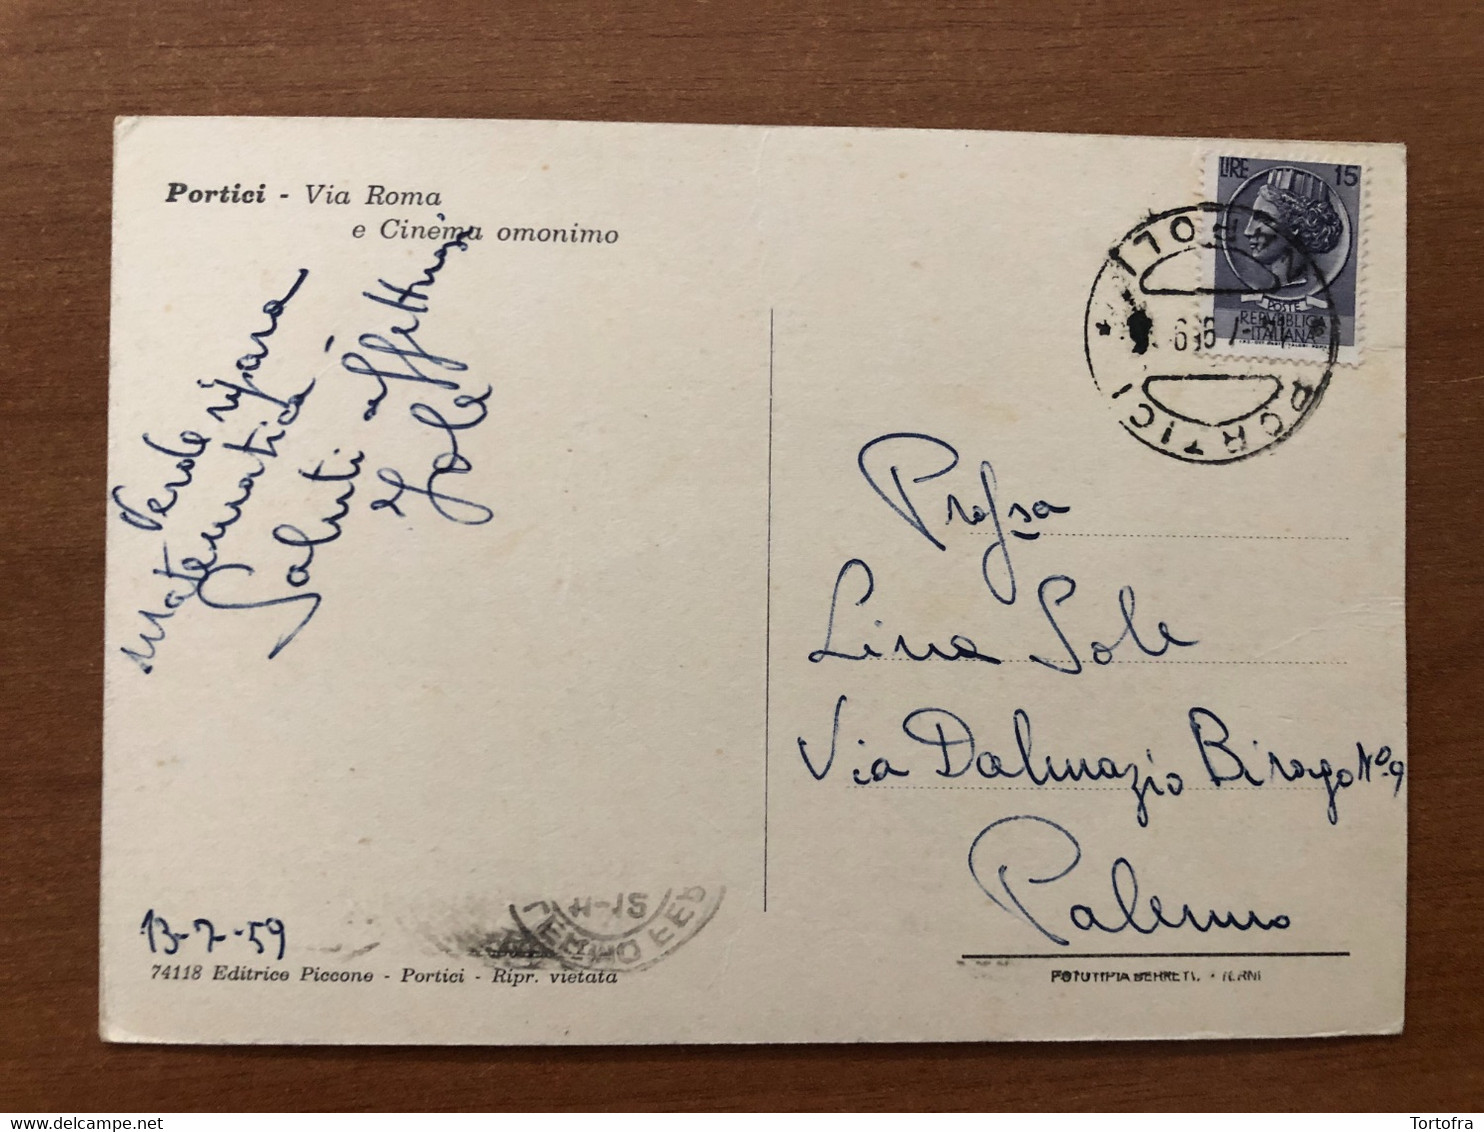 Portici - Via Roma
e Cinèma omonimo
matematica
Saluti affettuosi
Jole
13-7-59
74118 Editrice Piccone - Portici - Ripr. vietata
LIRE 15
POSTE
REPVBBLICA
ITALIANA
NAPOLI
PORTICI
Prof.sa
Lina Sole
Via Dalmazio Birago N.º 9
Palermo
FOTOTIPIA BERRETT. - TERNI
Tortofra